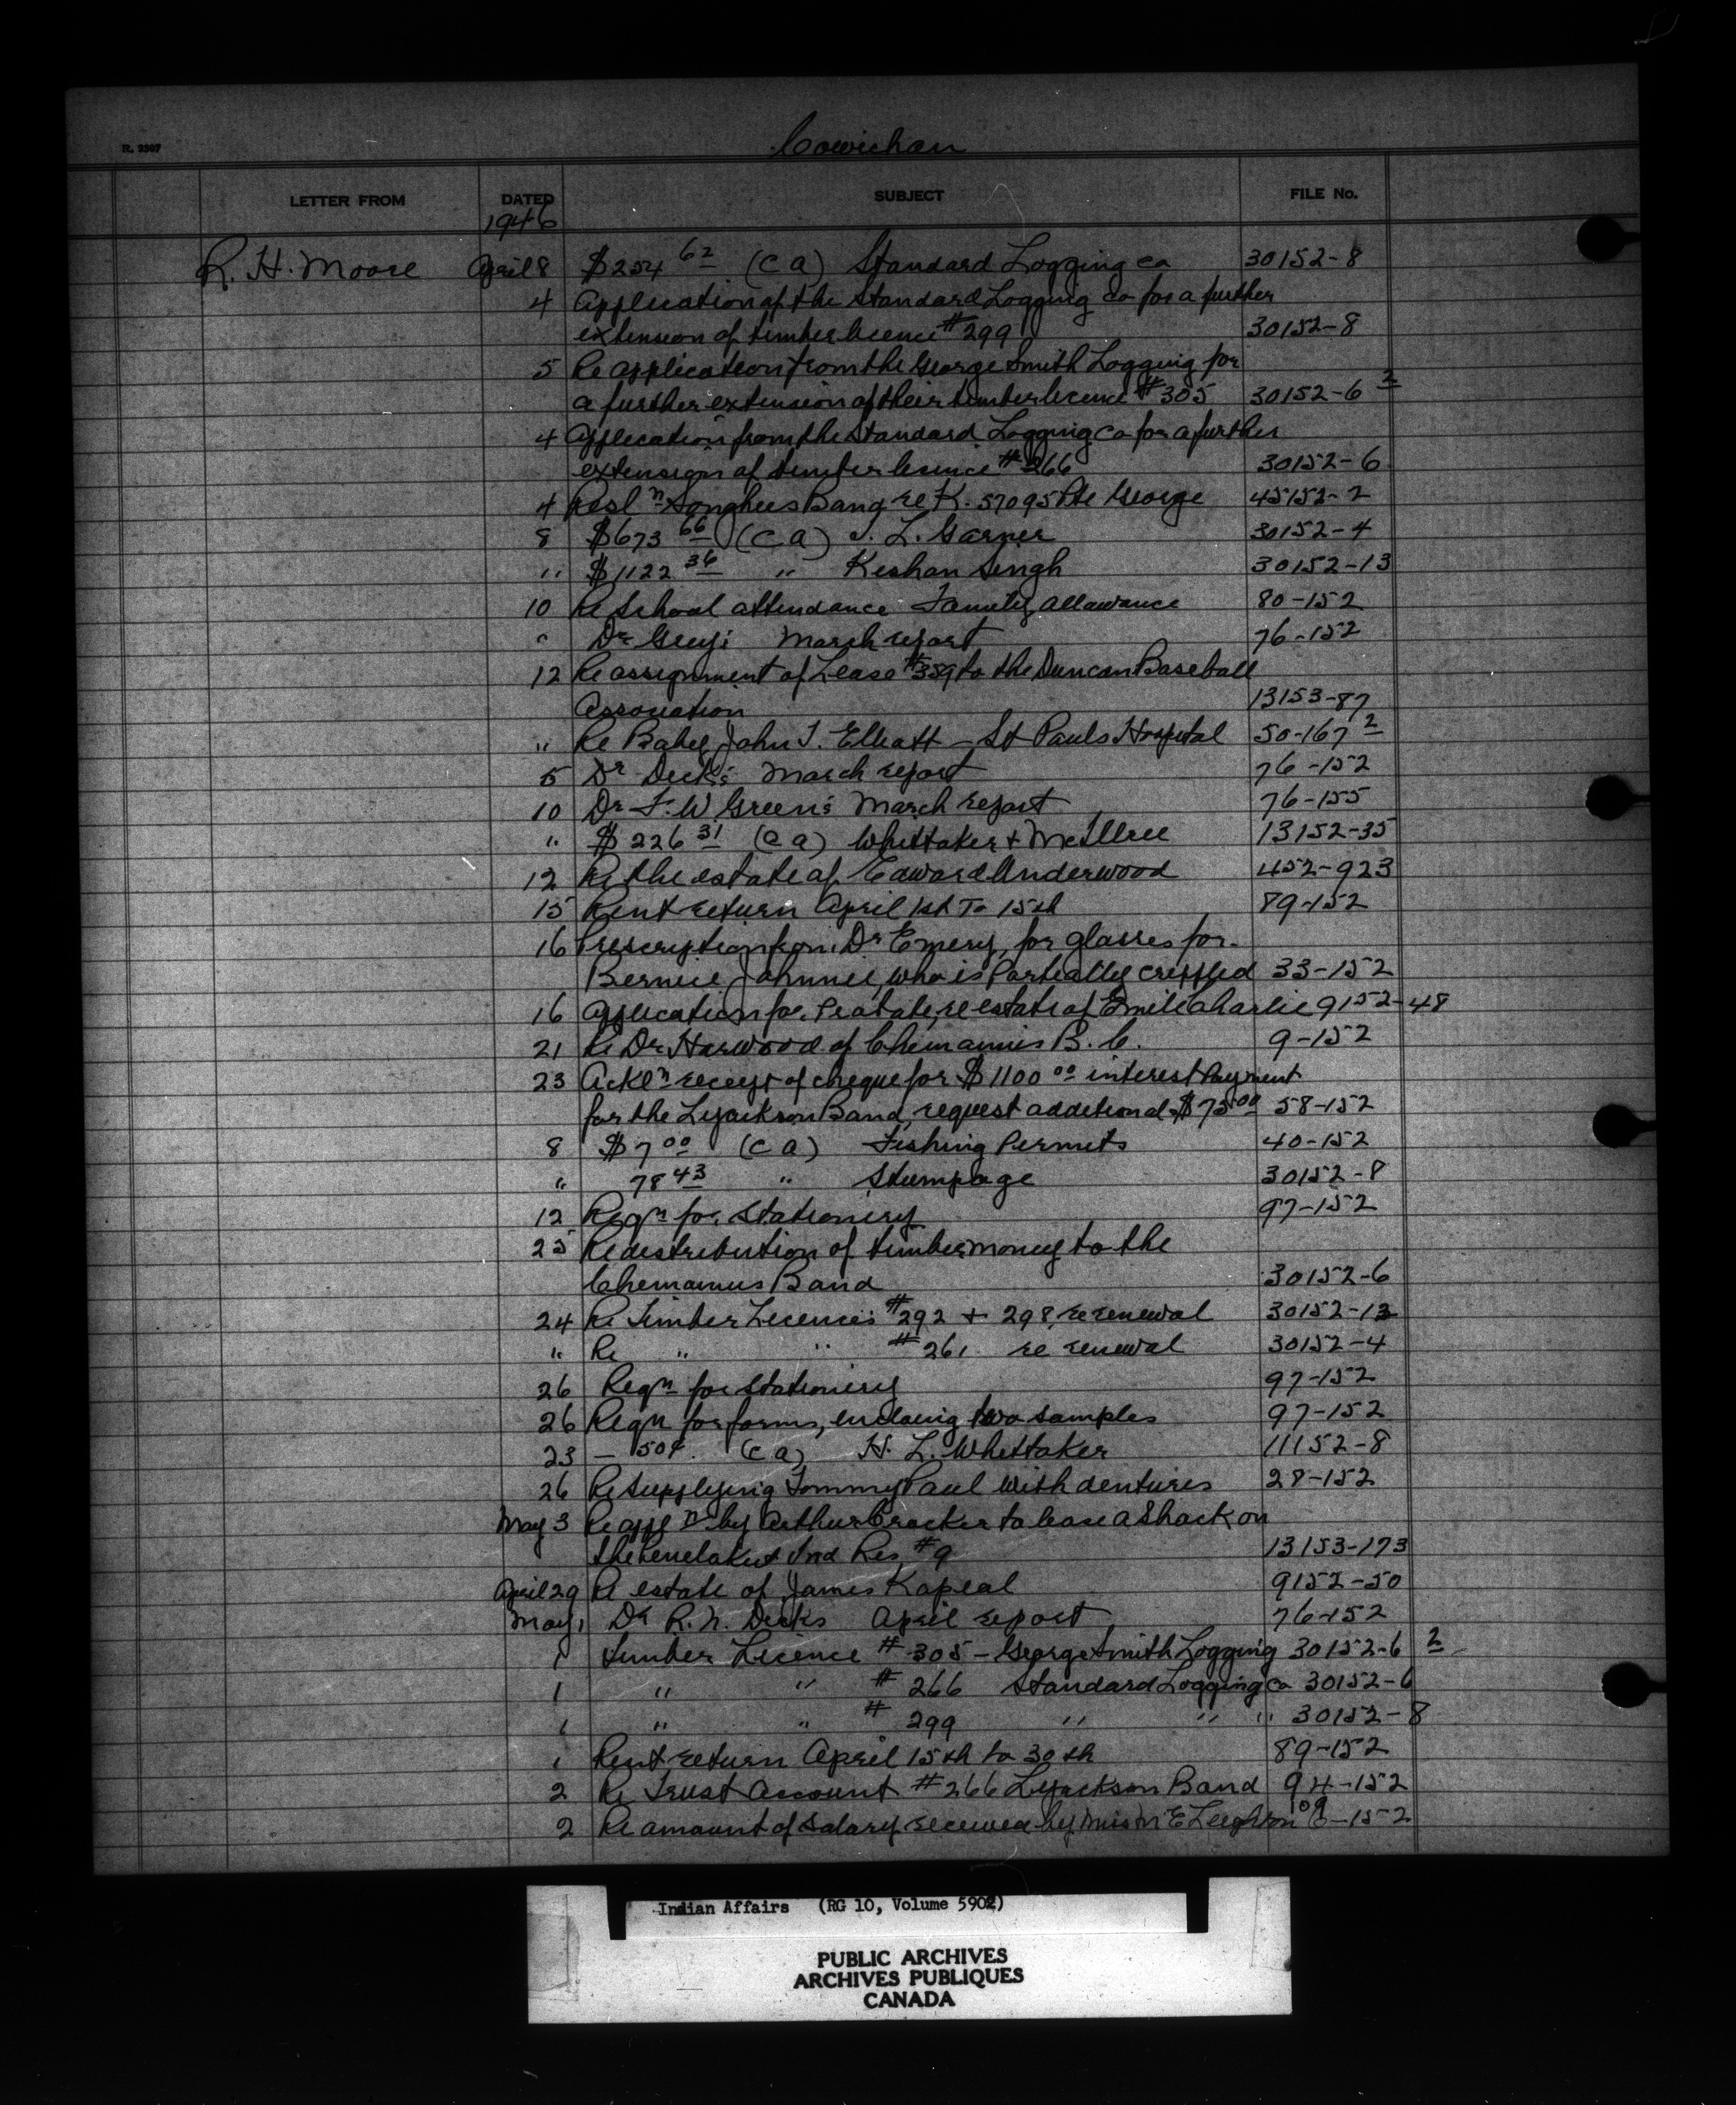 Cowichan
R. 2307
LETTER FROM DATED SUBJECT FILE No.
1946
R. H. Moore April 8 $254 62 (C a) Standard Logging Co 30152-8
4 Application of the Standard Logging Co for a further
extension of timber licence #299 30152-8
5 Re application from the George Smith Logging for
a further extension of their timber licence #305 30152-6 2
4 Application from the Standard Logging Co for a further
extension of timber licence #266 30152-6
4 Resl n Songhees Band re K. 57095 Pte George 45152-2
8 $673 66 (C a) J. L. Garner 30152-4
" $1122 36 " Keshan Singh 30152-13
10 Re School attendance Family allowance 80-152
" Dr March report 76-152
12 Re assignment of Lease #359 to the Duncan Baseball
Association 13153-87
" Re Baby John T. Elliott - St Pauls Hospital 50-167 2
5 Dr Deck's March report 76-152
10 Dr F. W. Green's March report 76-155
" $226 31 (C a) Whittaker + McIlree 13152-35
12 Re the estate of Edward Underwood 452-923
15 Rent return April 1st To 15th 89-152
16 Prescription from Dr Emery, for glasses for
Bernice Johnnie, who is Partially crippled 33-152
16 Application for Probate, re estate of Emile Charlie 9152-48
21 Re Dr Harwood of Chemainus B. C. 9-152
23 Ackln receipt of cheque for $1100 00 interest Payment
for the Lyackson Band, request additional $75 00 58-152
8 $7 00 (C a) Fishing Permits 40-152
" 78 43 " Stumpage 30152-8
12 Reqn for Stationery 97-152
25 Re distribution of timber money to the
Chemainus Band 30152-6
24 Re Timber Licences #292 + 298, re renewal 30152-13
" Re " " #261 re renewal 30152-4
26 Reqn for Stationery 97-152
26 Reqn for forms, enclosing two samples 97-152
23 - 50¢ (C a) H. L. Whittaker 11152-8
26 Re supplying Tommy Paul with dentures 28-152
May 3 Re appl n by Arthur Crocker to lease a Shack on
the Penelakut Ind Res #9 13153-173
April 29 Re estate of James Kapeal 9152-50
May 1 Dr R. N. Decks April report 76-152
1 Timber Licence #305 - George Smith Logging 30152-6 2
1 " " #266 Standard Logging Co 30152-6
1 " " #299 " " " 30152-8
1 Rent return April 15th to 30th 89-152
2 Re Trust Account #266 Lyackson Band 94-152
2 Re amount of salary received by Miss M E Leighton 109 E-152
Indian Affairs (RG 10, Volume 5902)
PUBLIC ARCHIVES
ARCHIVES PUBLIQUES
CANADA